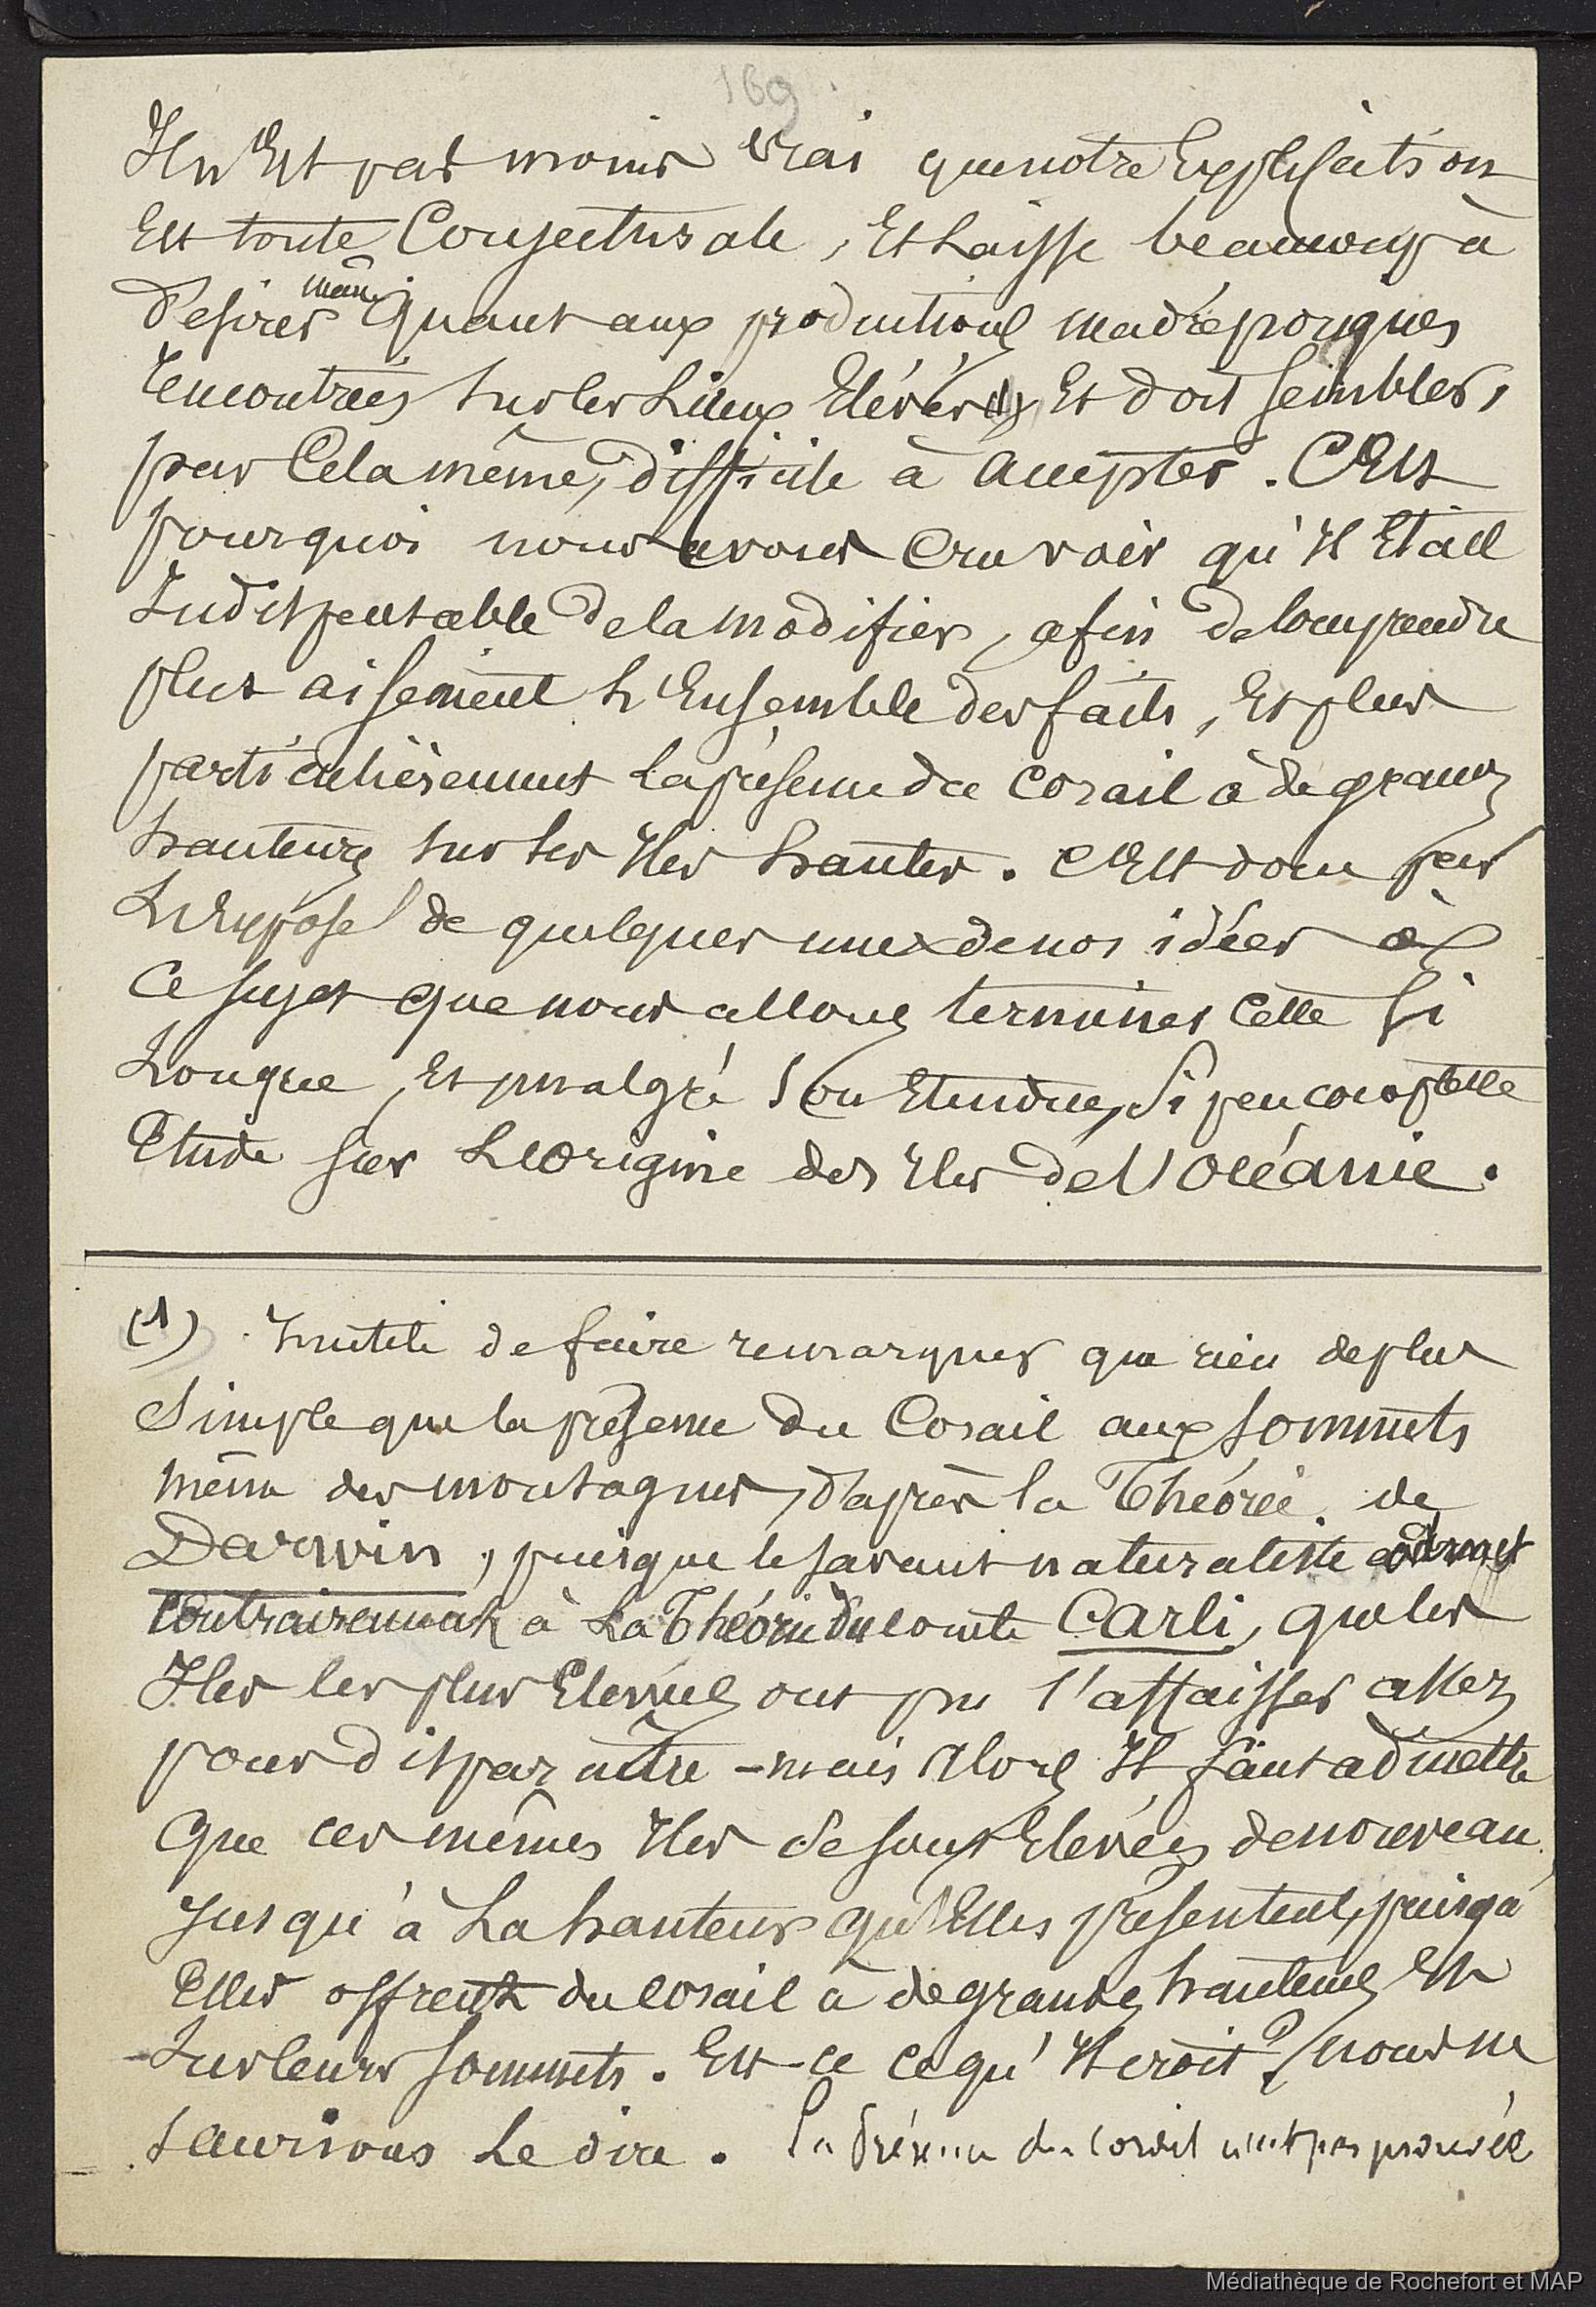 169
Il n'Est pas moins vrai que notre Explication
Est toute Conjecturale, Et Laisse beaucoup à
désirer même Quant aux productions madréporiques
rencontrées sur les Lieux Elévés (1) Et doit sembler,
par Cela même, difficile à accepter. C'Est
pourquoi nous avons Cru voir qu'Il Etait
Indispensable de la modifier, afin de Comprendre
plus aisement L'Ensemble des faits, Et plus
particulièrement La présence du Corail à de grandes
hauteurs sur les Iles hautes. C'Est donc par
L'Exposé de quelques unes de nos idées à
Ce sujet que nous allons terminer Cette si
Longue, Et malgré son Etendue, Si peu complette
Etude sur L'Origine des Iles de l'Océanie.
(1) Inutile de faire remarquer que rien de plus
Simple que la présence du Corail aux sommets
même des montagnes, d'après la Théorie de
Darwin, puisque le savant naturaliste admet
Contrairement à La Théorie du Comte Carli, que les
Iles les plus Elevées ont pu s'affaisser assez
pour disparaître - mais Alors Il faut admettre
Que ces mêmes Iles Se sont Elevées de nouveau
Jusqu'à La hauteur qu'Elles présentent, puisqu'
Elles offrent du Corail à de grandes hauteurs Et
Sur leurs sommets. Est-ce ce qu'Il croit? nous ne
Saurions Le dire. La Présence du Corail n'est pas prouvée
Médiathèque de Rochefort et MAP